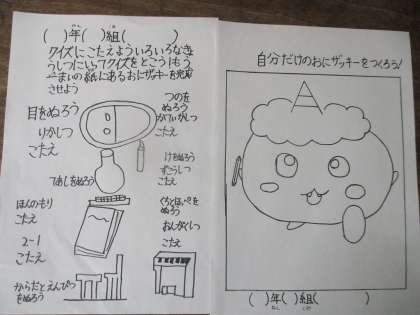 ( )年( )組( )
ねん くみ
クイズにこたえよういろいろなき
ょうしつにいってクイズをとこう!もう
一まいの紙にあるおにザッキーを完成
させよう
目をぬろう
りかしつ
こたえ
つのを
ぬろう
かていかしつ
こたえ
てあしをぬろう
けをぬろう
ずこうしつ
こたえ
ほんのもり
こたえ
2-1
こたえ
くちとほっぺを
ぬろう
おんがくしつ
こたえ
からだとえんぴつ
をぬろう
自分だけのおにザッキーをつくろう!
( )年( )組( )
ねん くみ